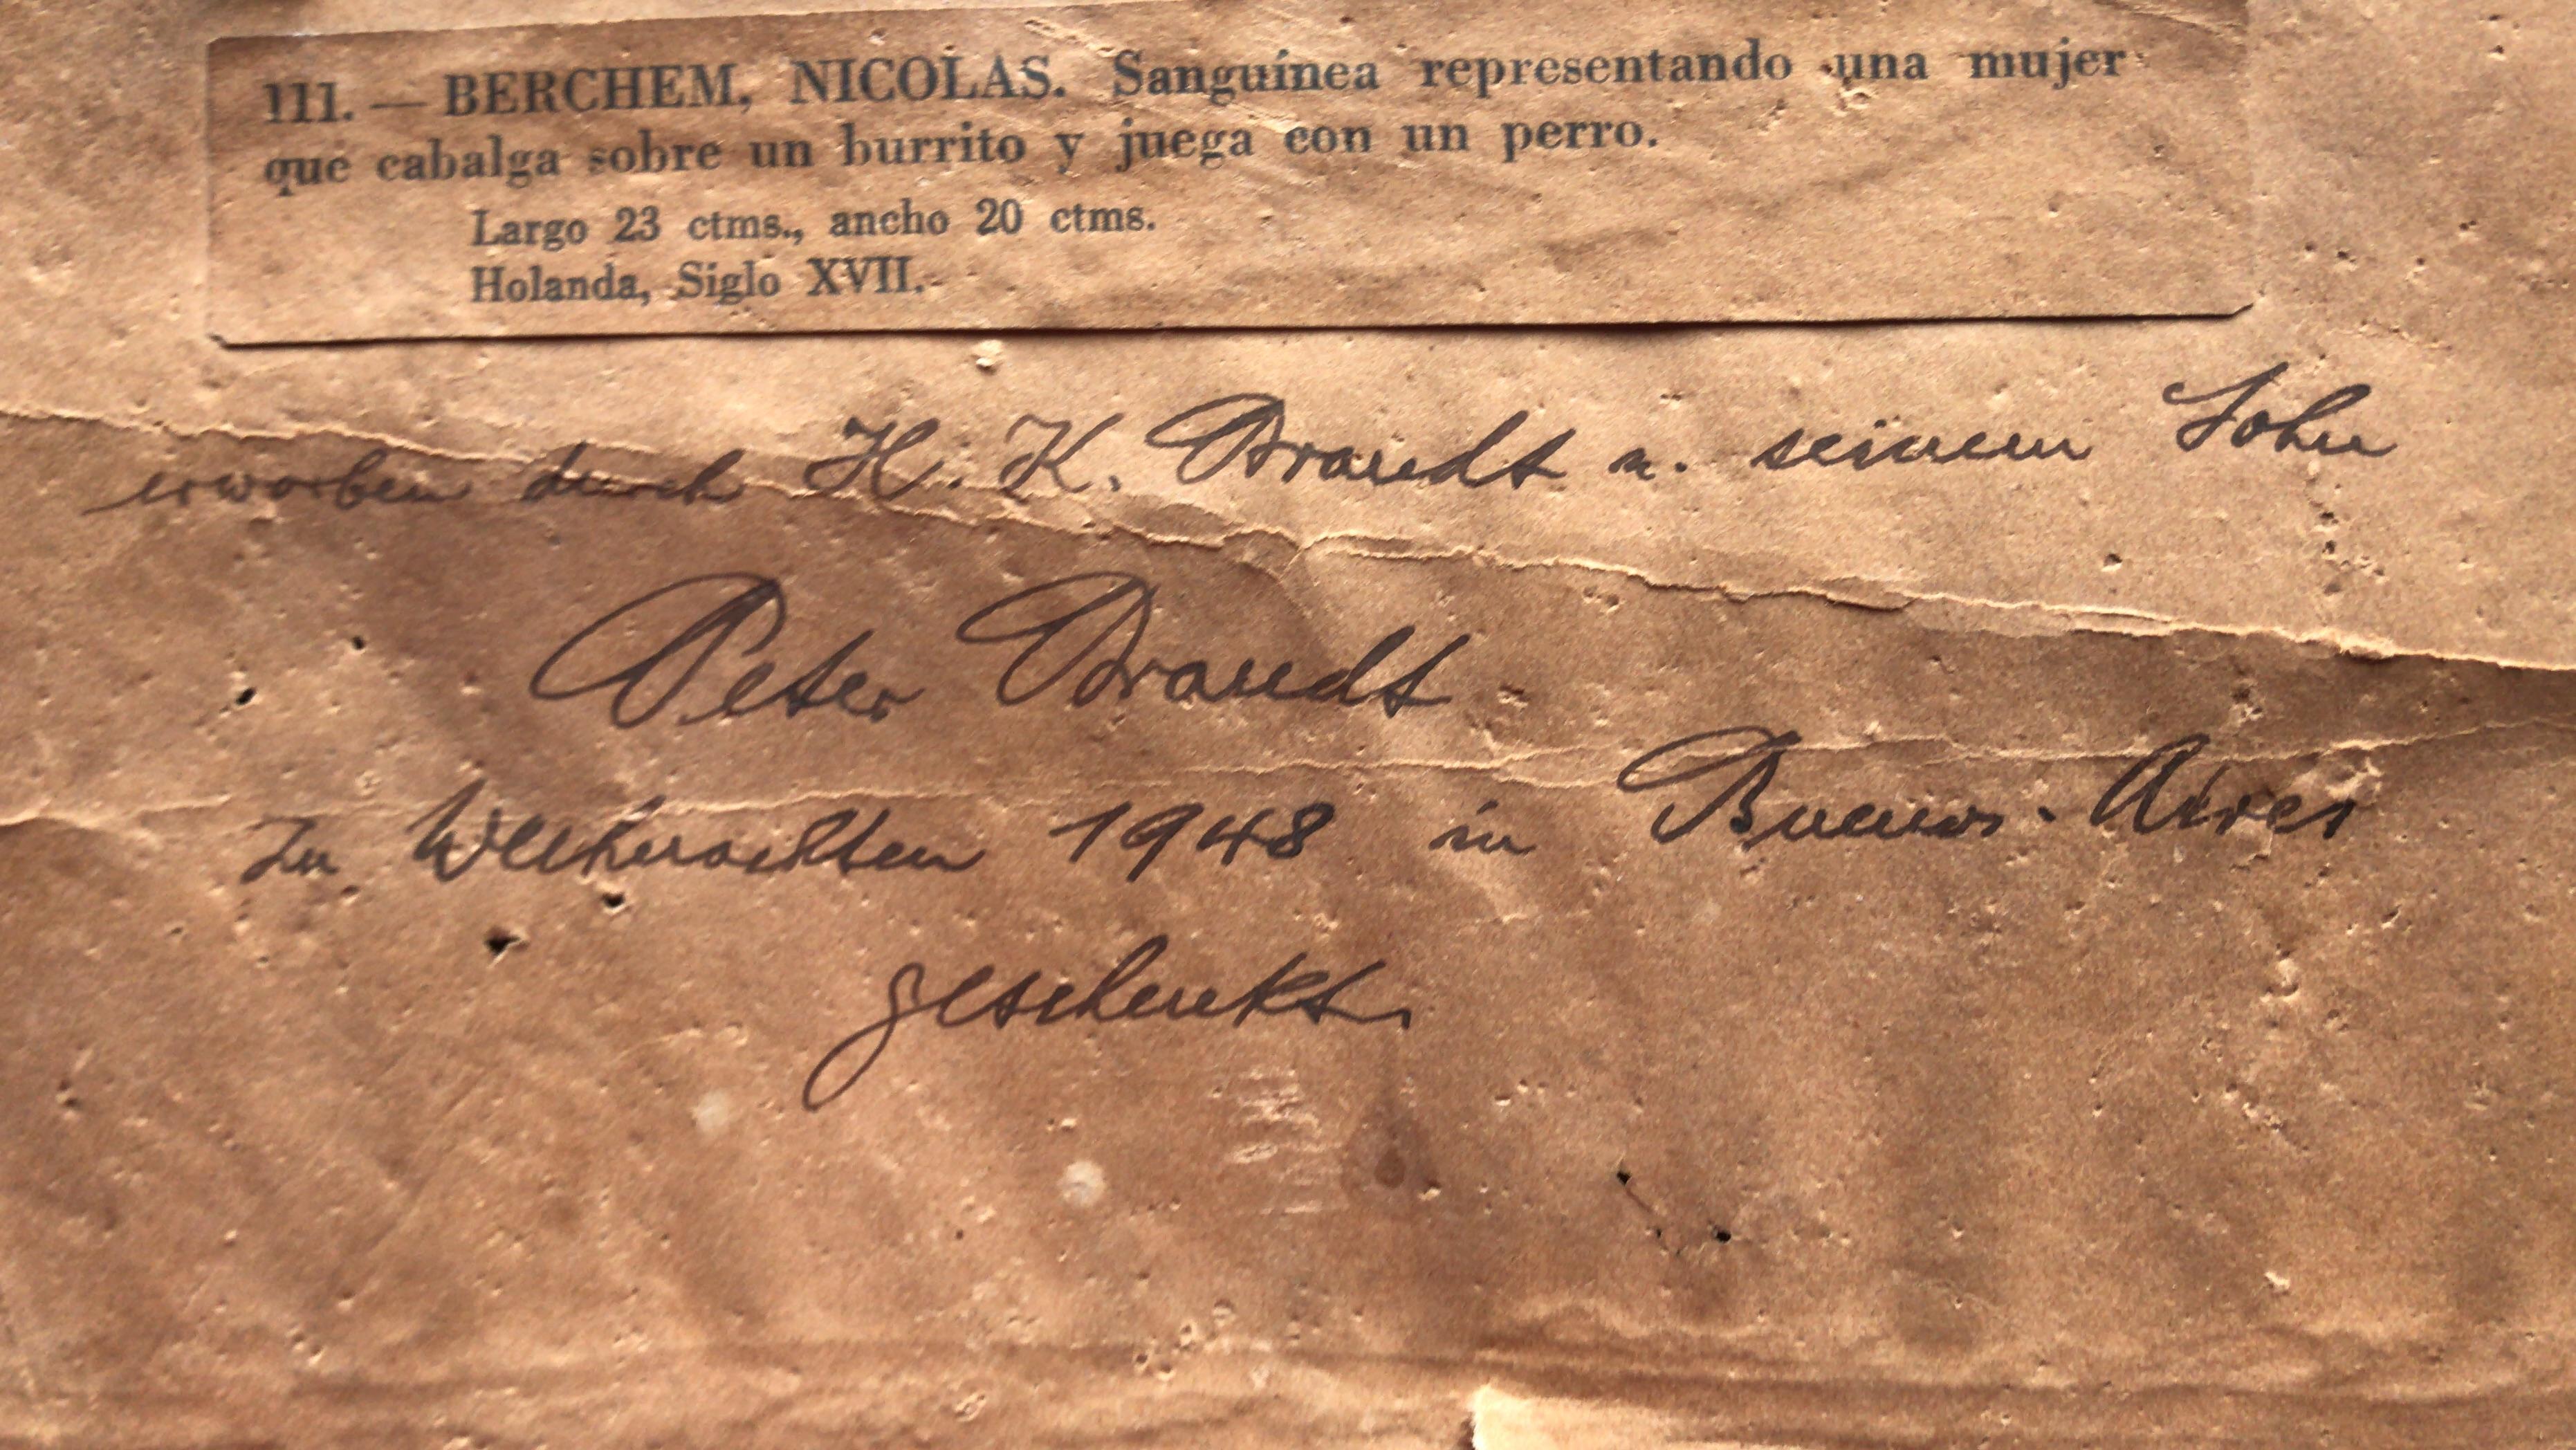 111. — BERCHEM, NICOLAS. Sanguínea representando una mujer
que cabalga sobre un burrito y juega con un perro.
Largo 23 ctms., ancho 20 ctms.
Holanda, Siglo XVII.-
erworben durch H. K. Brandt u. seinem Sohn
Peter Brandt
zu Weihnachten 1948 in Buenos-Aires
geschenkt.